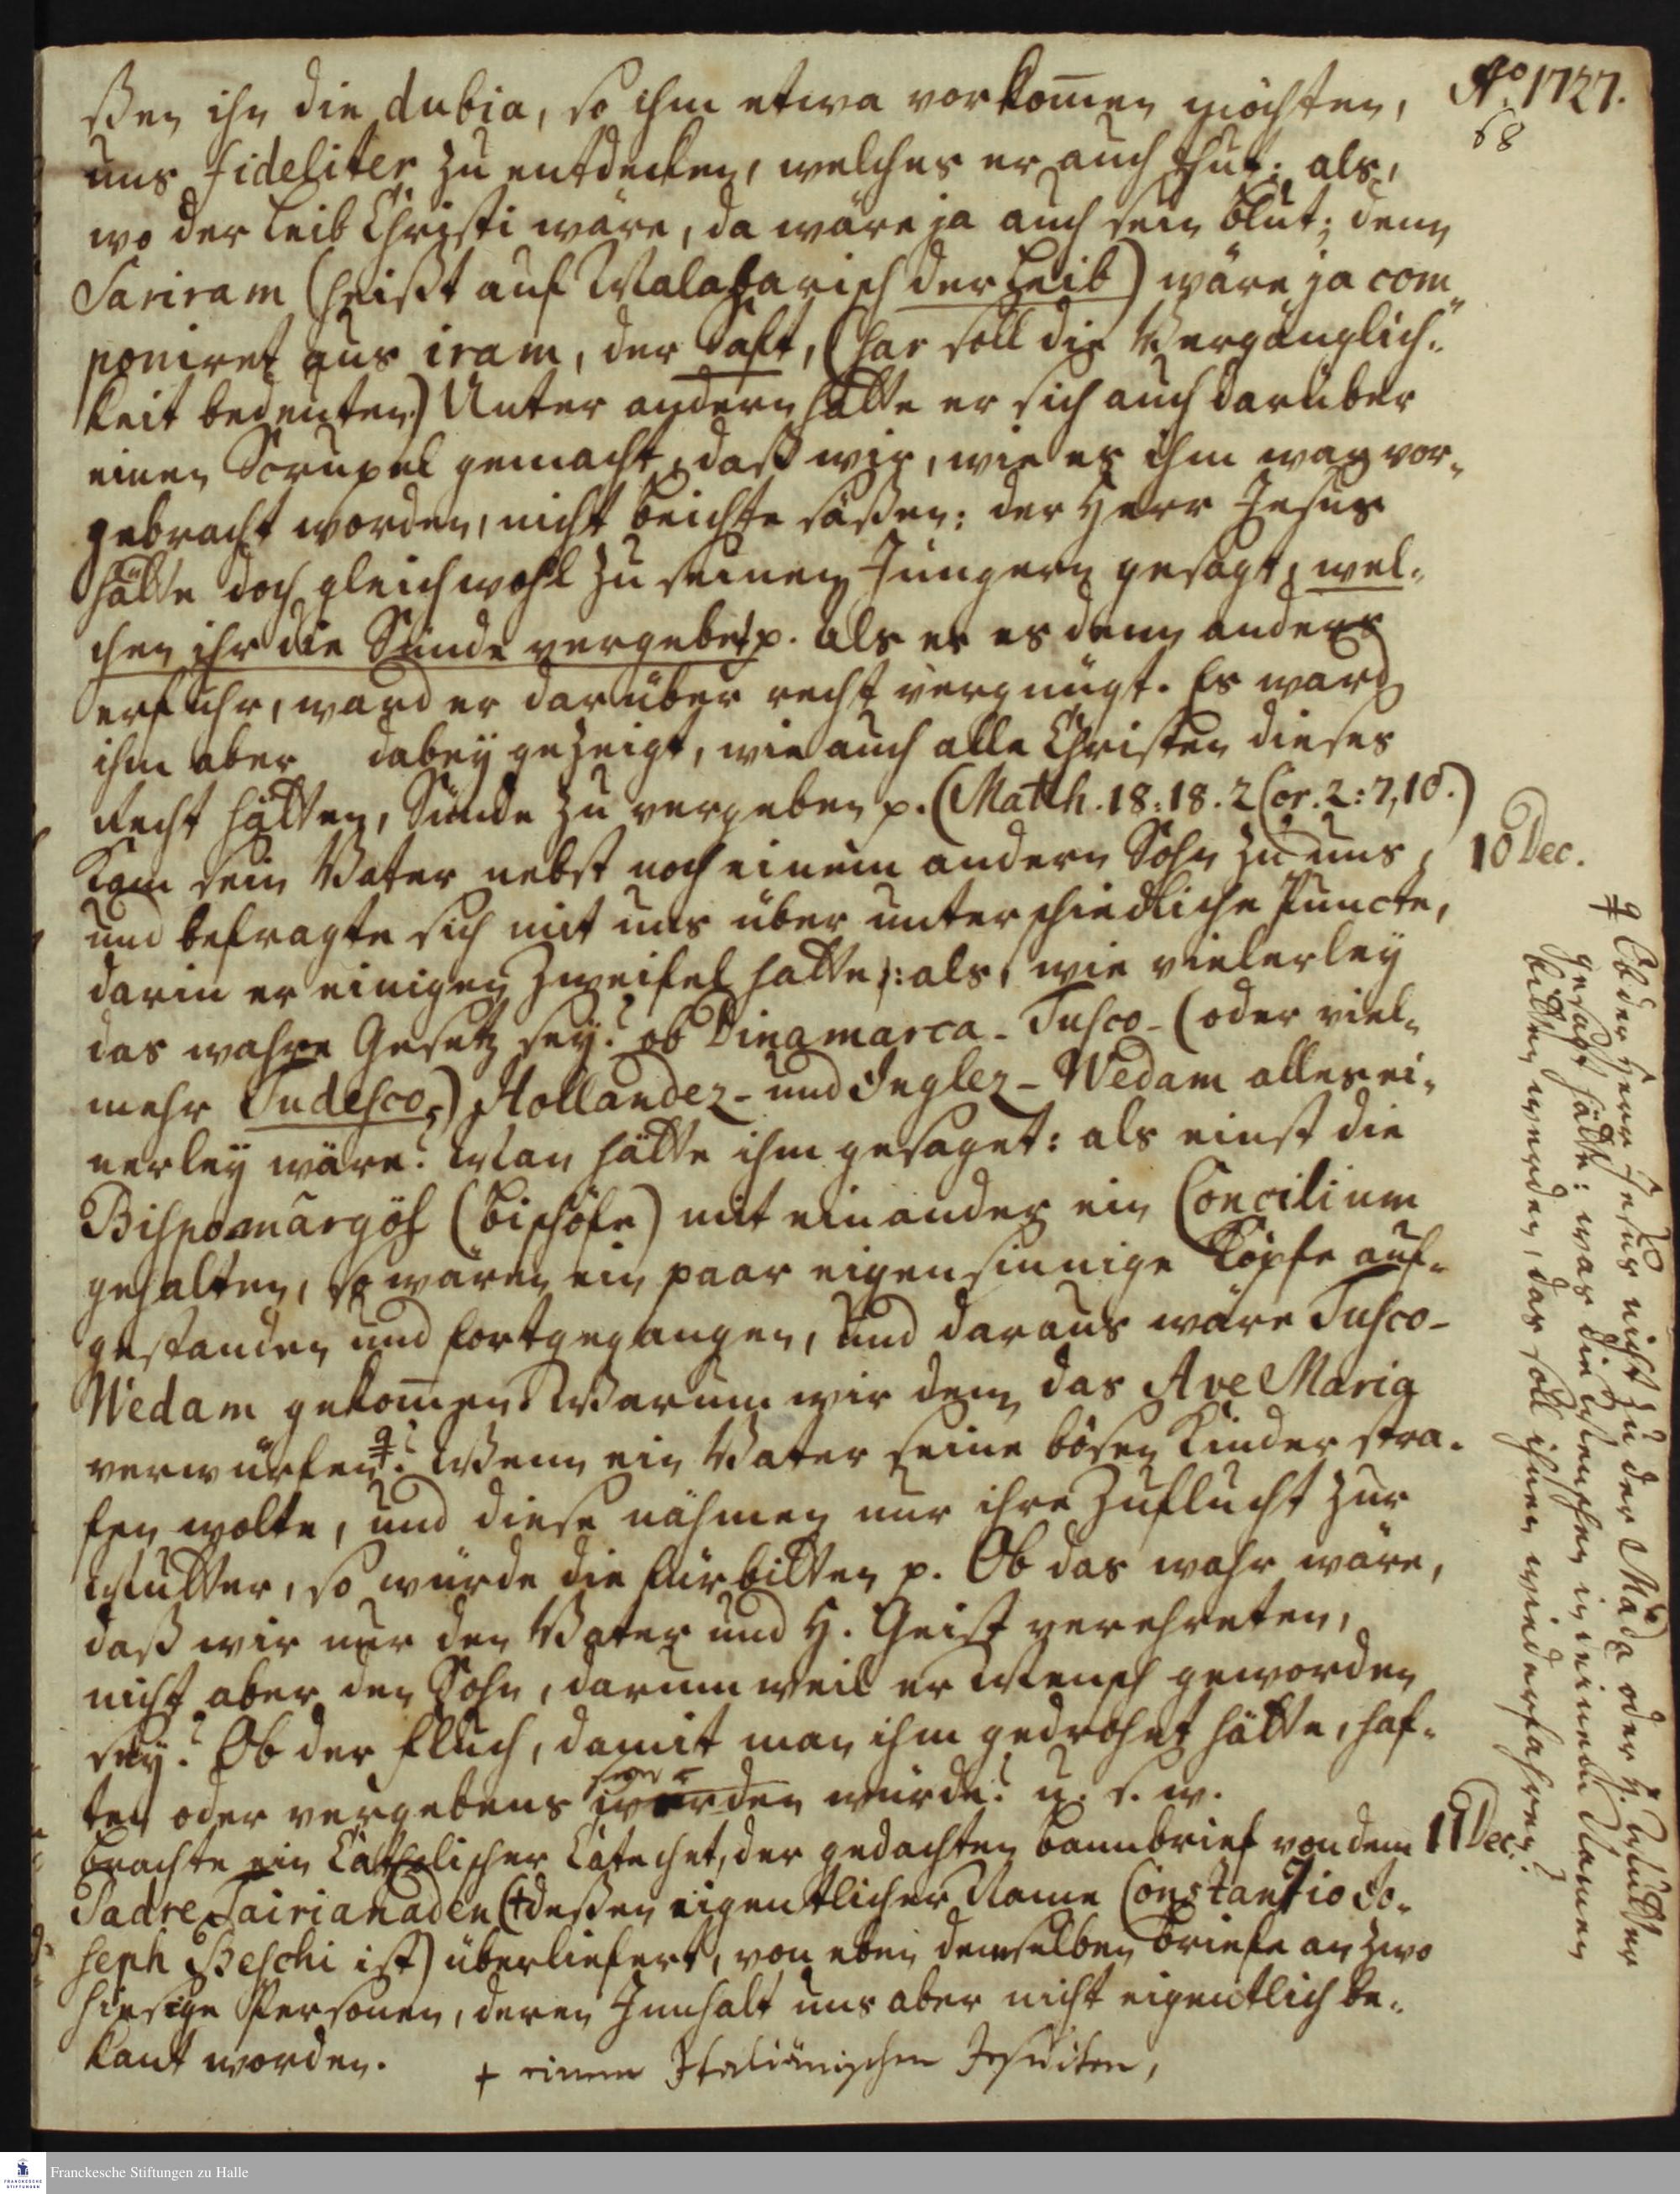 Aº. 1727.
68
ßen ihn die dubia, so ihm etwa vorkom̅en möchten,
uns fideliter zu entdecken, welches er auch thut: als,
wo der Leib Christi wäre, da wäre ja auch sein Blut; denn
Sariram (heißt auf Malabarisch der Leib) wäre ja com„
poniret aus iram, der Saft, (Sar soll die Vergänglich„
keit bedeuten.) Unter andern hatte er sich auch darüber
einen Scrupel gemacht, daß wir, wie es ihm war vor„
gebracht worden, nicht Beichte säßen: der Herr Jesus
hätte doch gleichwohl zu seinen Jüngern gesagt, wel„
chen ihr die Sünde vergebet p. Als er es denn anders
erfuhr, ward er darüber recht vergnügt. Es ward
ihm aber dabeÿ gezeigt, wie auch alle Christen dieses
Recht hätten, Sünde zu vergeben p. (Matth. 18:18. 2 Cor. 2:7,10.)
10 Dec.
Kam sein Vater nebst noch einem andern Sohn zu uns,
und befragte sich mit uns über unterschiedliche Puncte,
darin er einigen Zweifel hatte: als, wie vielerleÿ
das wahre Gesetz seÿ? ob Dinamarca- Tusco- (oder viel„
mehr Tudesco-) Hollandez- und Inglez-Wedam alles ei„
nerleÿ wäre? Man hätte ihm gesaget: als einst die
Bispomārgöl (Bischöfe) mit einander ein Concilium
gehalten, so wären ein paar eigensinnige Köpfe auf„
gestanden und fortgegangen, und daraus wäre Tusco-
Wedam gekom̅en. Warum wir denn das Ave Maria
verwürfen? Wenn ein Vater seine bösen Kinder stra„
fen wolte, und diese nähmen nur ihre Zuflucht zur
Mutter, so würde die fürbitten p. Ob das wahr wäre,
daß wir nur den Vater und H. Geist verehreten,
nicht aber den Sohn, darum weil er Mensch geworden
seÿ? Ob der Fluch, damit man ihm gedrohet hätte, haf„
ten oder vergebens seyn würde? u. s. w.
11 Dec.
Brachte ein Catholischer Catechet, der gedachten Bannbrief von dem
Padre Tairianaden (+ deßen eigentlicher Name Constantio Jo„
seph Beschi ist) überliefert, von eben demselben Briefe an zwo
hiesige Personen, deren Innhalt uns aber nicht eigentlich be„
kant worden.
+ einem Italiänischen Jesuiten,
Ob der Herr Jesus nicht zu der Mádá oder H. Mutter
gesagt hätte: was die Menschen in deinem Namen
bitten werden, das soll ihnen wiederfahren?
Franckesche Stiftungen zu Halle